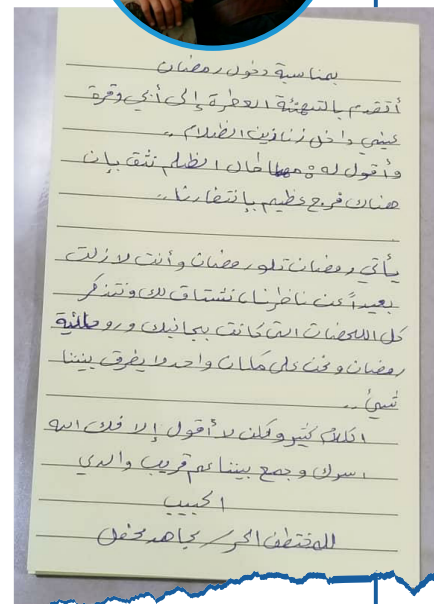 بمناسبة دخول رمضان
أتقدم بالتهنئة العطرة إلى أبي وقرة
عيني داخل زنازين الظلام ..
وأقول له: مهما طال الظلم نثق بإن
هناك فرج عظيم بإنتظارنا ..
يأتي رمضان تلو رمضان وأنت لازلت
بعيداً عن ناظرنا، نشتاق لك ونتذكر
كل اللحضات التي كانت بجانبك وروحانية
رمضان ونحن على مكان واحد ولا يفرق بيننا
شيئ ..
الكلام كثير ولكن لا أقول إلا فك الله
اسرك وجمع بيننا عم قريب والدي
الحبيب
للمختطف الحر / مجاهد